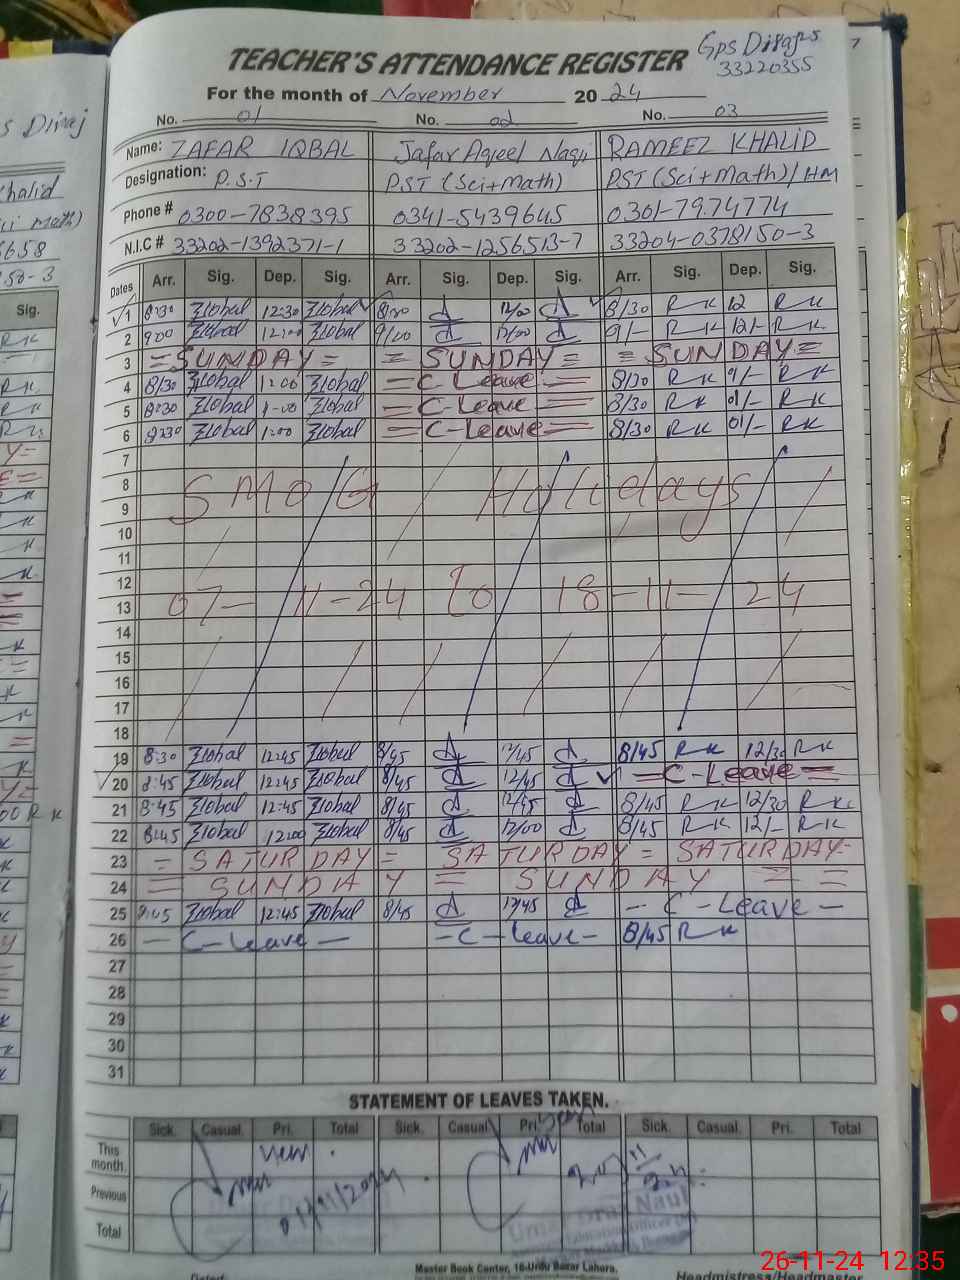 Gps Diraj
33220355
7
TEACHER'S ATTENDANCE REGISTER
For the month of November 20 24
No. 01 No. 02 No. 03
Name: ZAFAR IQBAL Jafar Aqeel Naqvi RAMEEZ KHALID
Designation: P.S.T PST (Sci+Math) PST (Sci+Math)/HM
Phone # 0300-7838395 0341-5439645 0301-7974774
N.I.C # 33202-1392371-1 33202-1256513-7 33204-0378150-3
Dates Arr. Sig. Dep. Sig. Arr. Sig. Dep. Sig. Arr. Sig. Dep. Sig.
1 8:30 Iqbal 12:30 Iqbal 8:30 12/00 8/30 RK 12 RK
2 9:00 Iqbal 12:00 Iqbal 9/00 12/00 9/- RK 12/- RK
3 = SUNDAY = = SUNDAY = = SUNDAY =
4 8/30 Iqbal 1:00 Iqbal = C Leave = 8/30 RK 1/- RK
5 8:30 Iqbal 1:00 Iqbal = C-Leave = 8/30 RK 01/- RK
6 8:30 Iqbal 1:00 Iqbal = C-Leave = 8/30 RK 01/- RK
7
8 SMOG Holidays
9
10
11
12
13 07-11-24 to 18-11-24
14
15
16
17
18
19 8:30 Iqbal 12:45 Iqbal 8/45 12/45 8/45 RK 12/30 RK
20 8:45 Iqbal 12:45 Iqbal 8/45 12/45 = C-Leave =
21 8:45 Iqbal 12:45 Iqbal 8/45 12/45 8/45 RK 12/30 RK
22 8:45 Iqbal 12:00 Iqbal 8/45 12/00 8/45 RK 12/- RK
23 = SATURDAY = SATURDAY = SATURDAY =
24 = SUNDAY = SUNDAY = =
25 8:45 Iqbal 12:45 Iqbal 8/45 12/45 - C-Leave -
26 - C-Leave - - C-Leave - 8/45 RK
27
28
29
30
31
STATEMENT OF LEAVES TAKEN.
Sick. Casual. Pri. Total Sick. Casual Pri. Total Sick. Casual. Pri. Total
This month.
Previous
Total
Master Book Center, 16-Urdu Bazar Lahore.
Headmistress/Headmaster
26-11-24 12:35